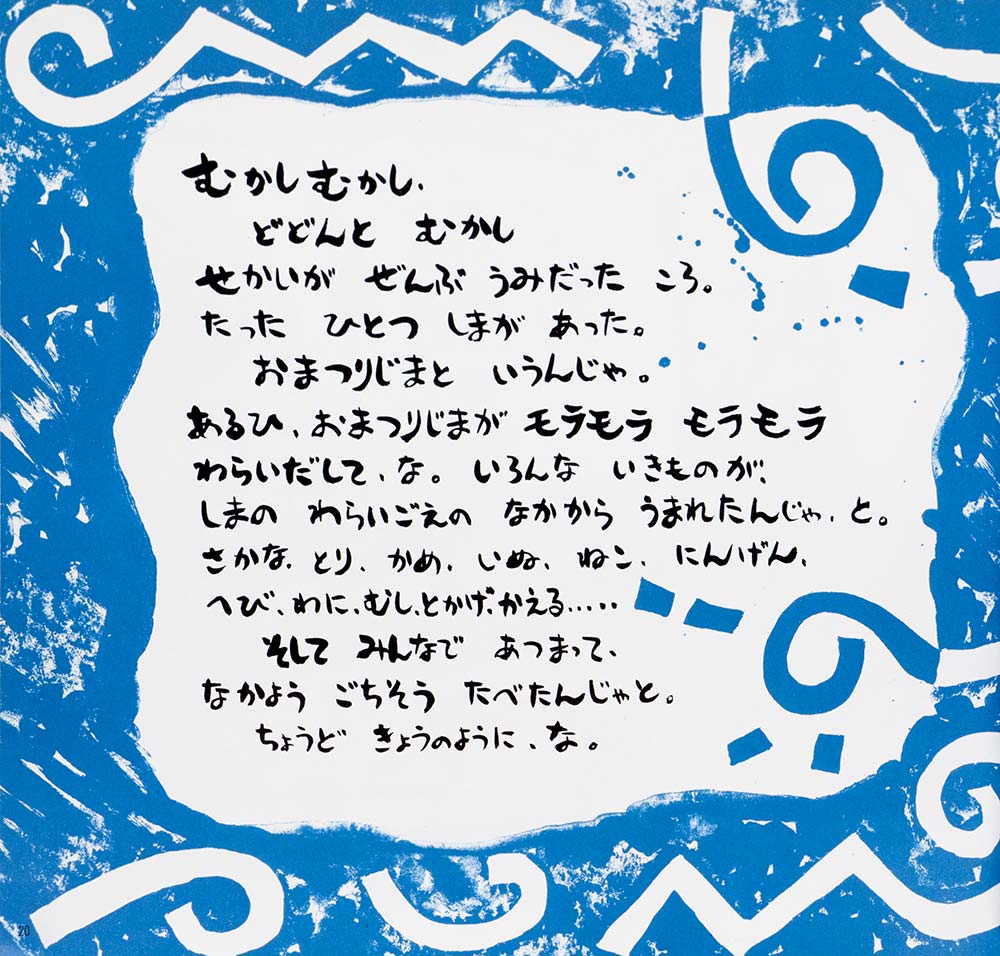 むかしむかし、
どどんと むかし
せかいが ぜんぶ うみだった ころ。
たった ひとつ しまが あった。
おまつりじまと いうんじゃ。
あるひ、おまつりじまが モラモラ モラモラ
わらいだして、な。 いろんな いきものが、
しまの わらいごえの なかから うまれたんじゃ、と。
さかな、とり、かめ、いぬ、ねこ、にんげん、
へび、わに、むし、とかげ、かえる‥‥‥
そして みんなで あつまって、
なかよう ごちそう たべたんじゃと。
ちょうど きょうのように、な。
20